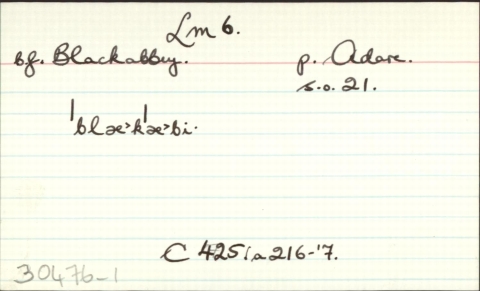 Lm 6.
bf. Blackabbey. p. Adare.
s.o. 21.
ˈblæ˃kˈæ˃bi.
C 425/a 216-'7.
30476-1